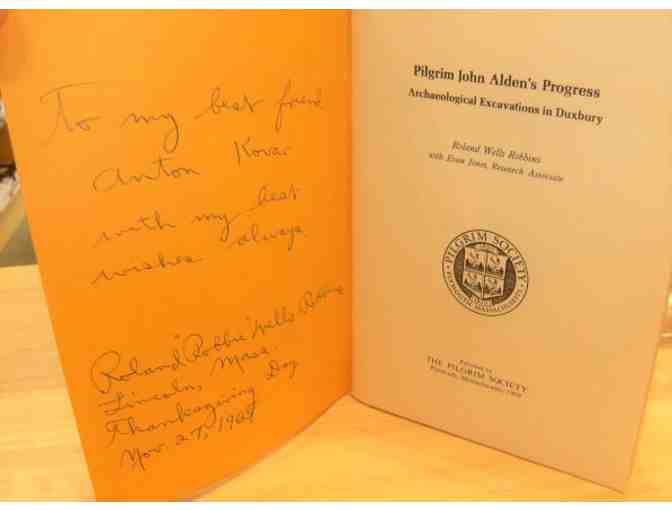 To my best friend
Anton Kovar
with my best
wishes always
Roland "Robbie" Wells Robbins
Lincoln, Mass.
Thanksgiving Day
Nov. 27, 1969
Pilgrim John Alden's Progress
Archaeological Excavations in Duxbury
Roland Wells Robbins
with Evan Jones, Research Associate
PILGRIM SOCIETY
PLYMOUTH MASSACHUSETTS
Published by
THE PILGRIM SOCIETY
Plymouth, Massachusetts / 1969